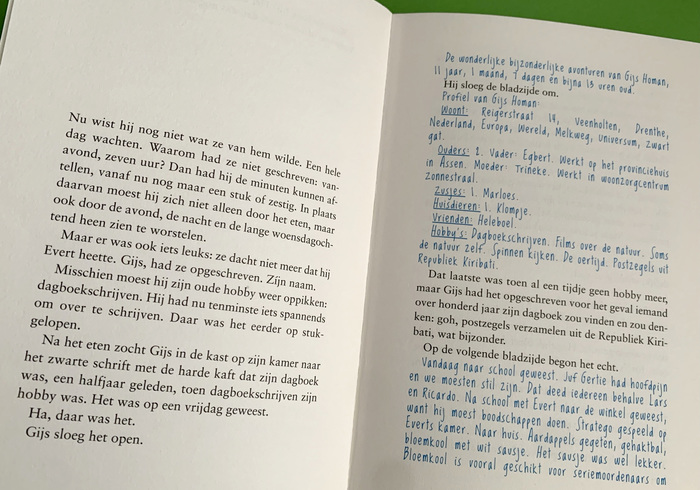 Nu wist hij nog niet wat ze van hem wilde. Een hele
dag wachten. Waarom had ze niet geschreven: van-
avond, zeven uur? Dan had hij de minuten kunnen af-
tellen, vanaf nu nog maar een stuk of zestig. In plaats
daarvan moest hij zich niet alleen door het eten, maar
ook door de avond, de nacht en de lange woensdagoch-
tend heen zien te worstelen.
Maar er was ook iets leuks: ze dacht niet meer dat hij
Evert heette. Gijs, had ze opgeschreven. Zíjn naam.
Misschien moest hij zijn oude hobby weer oppikken:
dagboekschrijven. Hij had nu tenminste iets spannends
om over te schrijven. Daar was het eerder op stuk-
gelopen.
Na het eten zocht Gijs in de kast op zijn kamer naar
het zwarte schrift met de harde kaft dat zijn dagboek
was, een halfjaar geleden, toen dagboekschrijven zijn
hobby was. Het was op een vrijdag geweest.
Ha, daar was het.
Gijs sloeg het open.
De wonderlijke bijzonderlijke avonturen van Gijs Homan,
11 jaar, 1 maand, 7 dagen en bijna 13 uren oud.
Hij sloeg de bladzijde om.
Profiel van Gijs Homan:
Woont: Reigerstraat 14, Veenholten, Drenthe,
Nederland, Europa, Wereld, Melkweg, Universum, Zwart
gat.
Ouders: 2. Vader: Egbert. Werkt op het provinciehuis
in Assen. Moeder: Trineke. Werkt in woonzorgcentrum
Zonnestraal.
Zusjes: 1. Marloes.
Huisdieren: 1. Klompje.
Vrienden: Heleboel.
Hobby's: Dagboekschrijven. Films over de natuur. Soms
de natuur zelf. Spinnen kijken. De oertijd. Postzegels uit
Republiek Kiribati.
Dat laatste was toen al een tijdje geen hobby meer,
maar Gijs had het opgeschreven voor het geval iemand
over honderd jaar zijn dagboek zou vinden en zou den-
ken: goh, postzegels verzamelen uit de Republiek Kiri-
bati, wat bijzonder.
Op de volgende bladzijde begon het echt.
Vandaag naar school geweest. Juf Gertie had hoofdpijn
en we moesten stil zijn. Dat deed iedereen behalve Lars
en Ricardo. Na school met Evert naar de winkel geweest,
want hij moest boodschappen doen. Stratego gespeeld op
Everts kamer. Naar huis. Aardappels gegeten, gehaktbal,
bloemkool met wit sausje. Het sausje was wél lekker.
Bloemkool is vooral geschikt voor seriemoordenaars om